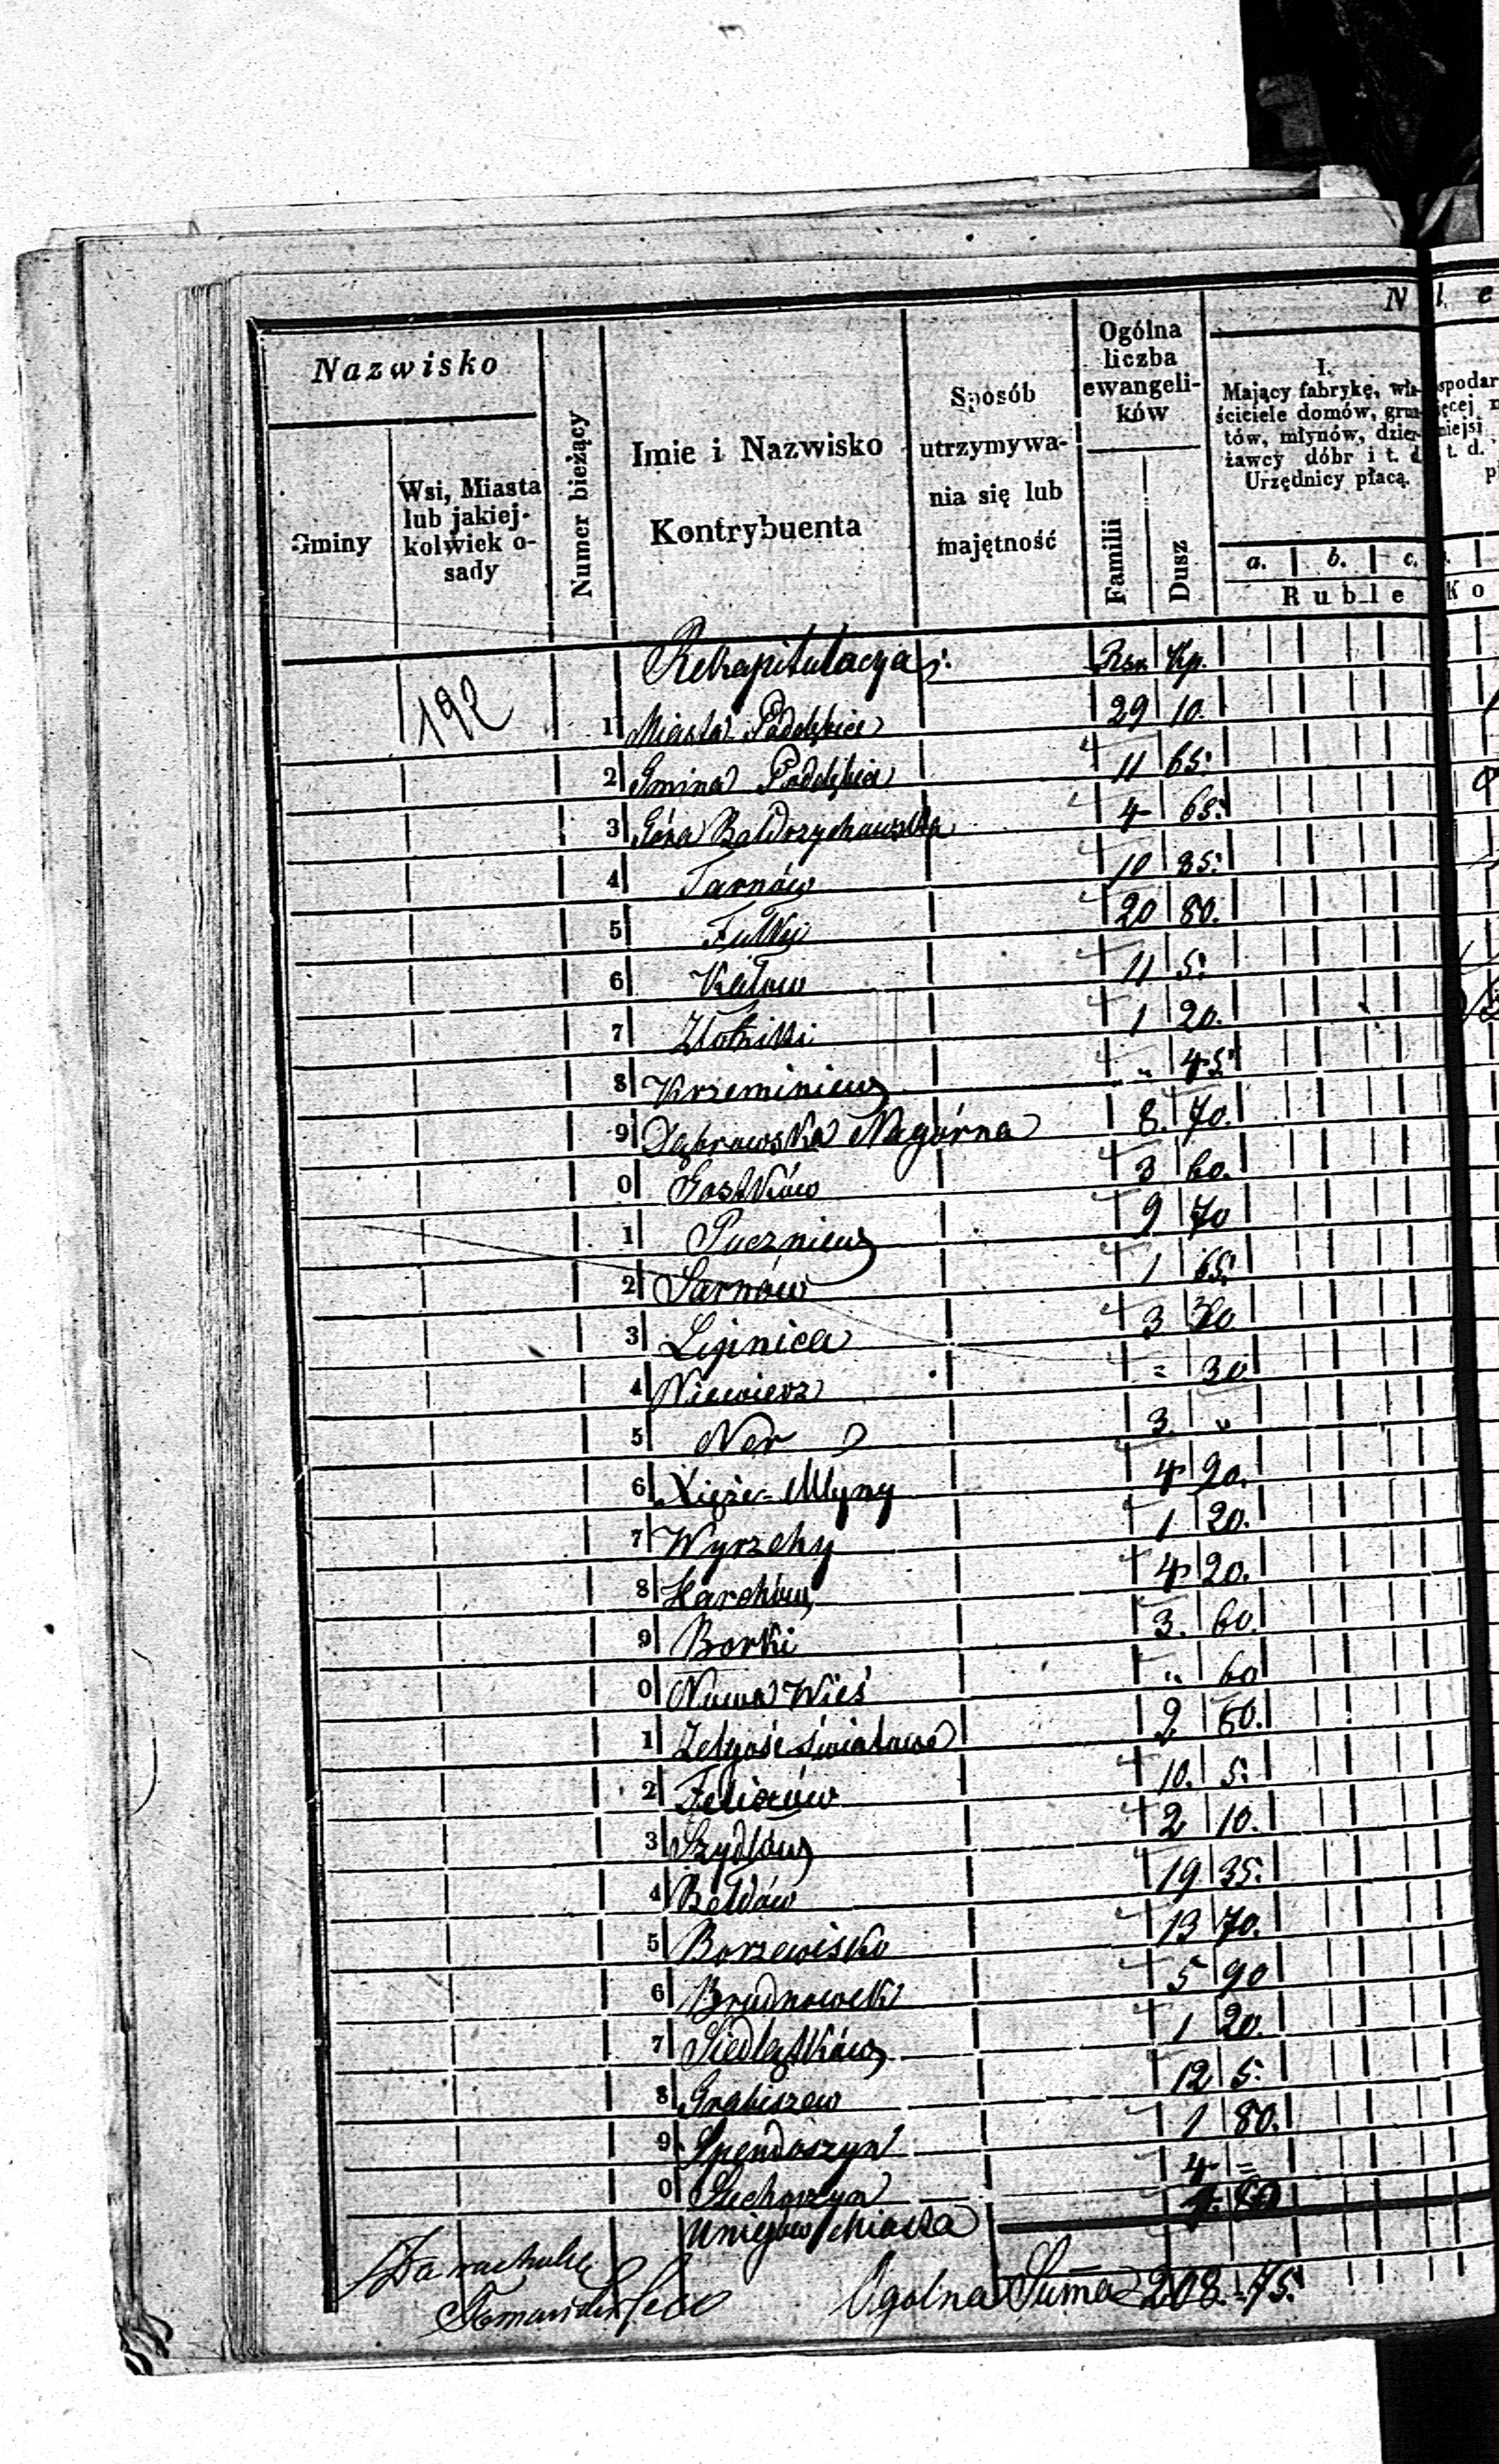 Nazwisko
Gminy
Wsi, Miasta lub jakiej-kolwiek o-sady
Numer bieżący
Imie i Nazwisko
Kontrybuenta
Sposób utrzymywa-nia się lub majętność
Ogólna liczba ewangeli-ków
Familii
Dusz
N l. e
I.
Mający fabrykę, wła-
ściciele domów, grun-
tów, młynów, dzier-
żawcy dóbr i t. d.
Urzędnicy płacą.
a. b. c.
Ruble
Ko
192
Rekapitulacya: Rsr. Kp.
1 Miasta Poddębice 29 10.
2 Gmina Poddębice 11 65.
3 Góra Bałdrzychowska 4 65.
4 Tarnów 10 85.
5 Fułki 20 80.
6 Kałow 11 5.
7 Złotniki 1 20.
8 Krzeminiew " 45.
9 Dąbrowska Nagórna 8. 70.
0 Gostków 3 60.
1 Puczniew 9 70
2 Sarnów 1 65.
3 Leginica 3 30
4 Niewiesz = 30
5 Ner 3. "
6 Xięże-Młyny 4 20.
7 Wyrzehy 1 20.
8 Karchów 4 20.
9 Borki 3. 60.
0 Nowa Wieś " 60
1 Zelgośc 2 60.
2 10. 5.
3 Szydłów 2 10.
4 Bełdów 19 35.
5 Borzewisko 13 70.
6 Brudnowek 5 90
7 Siedlątków 1 20.
8 Grabiszew 12 5.
9 Spendoszyn 1 80.
0 4 =
Uniejów Miasta
Ogolna Suma 208. 75.